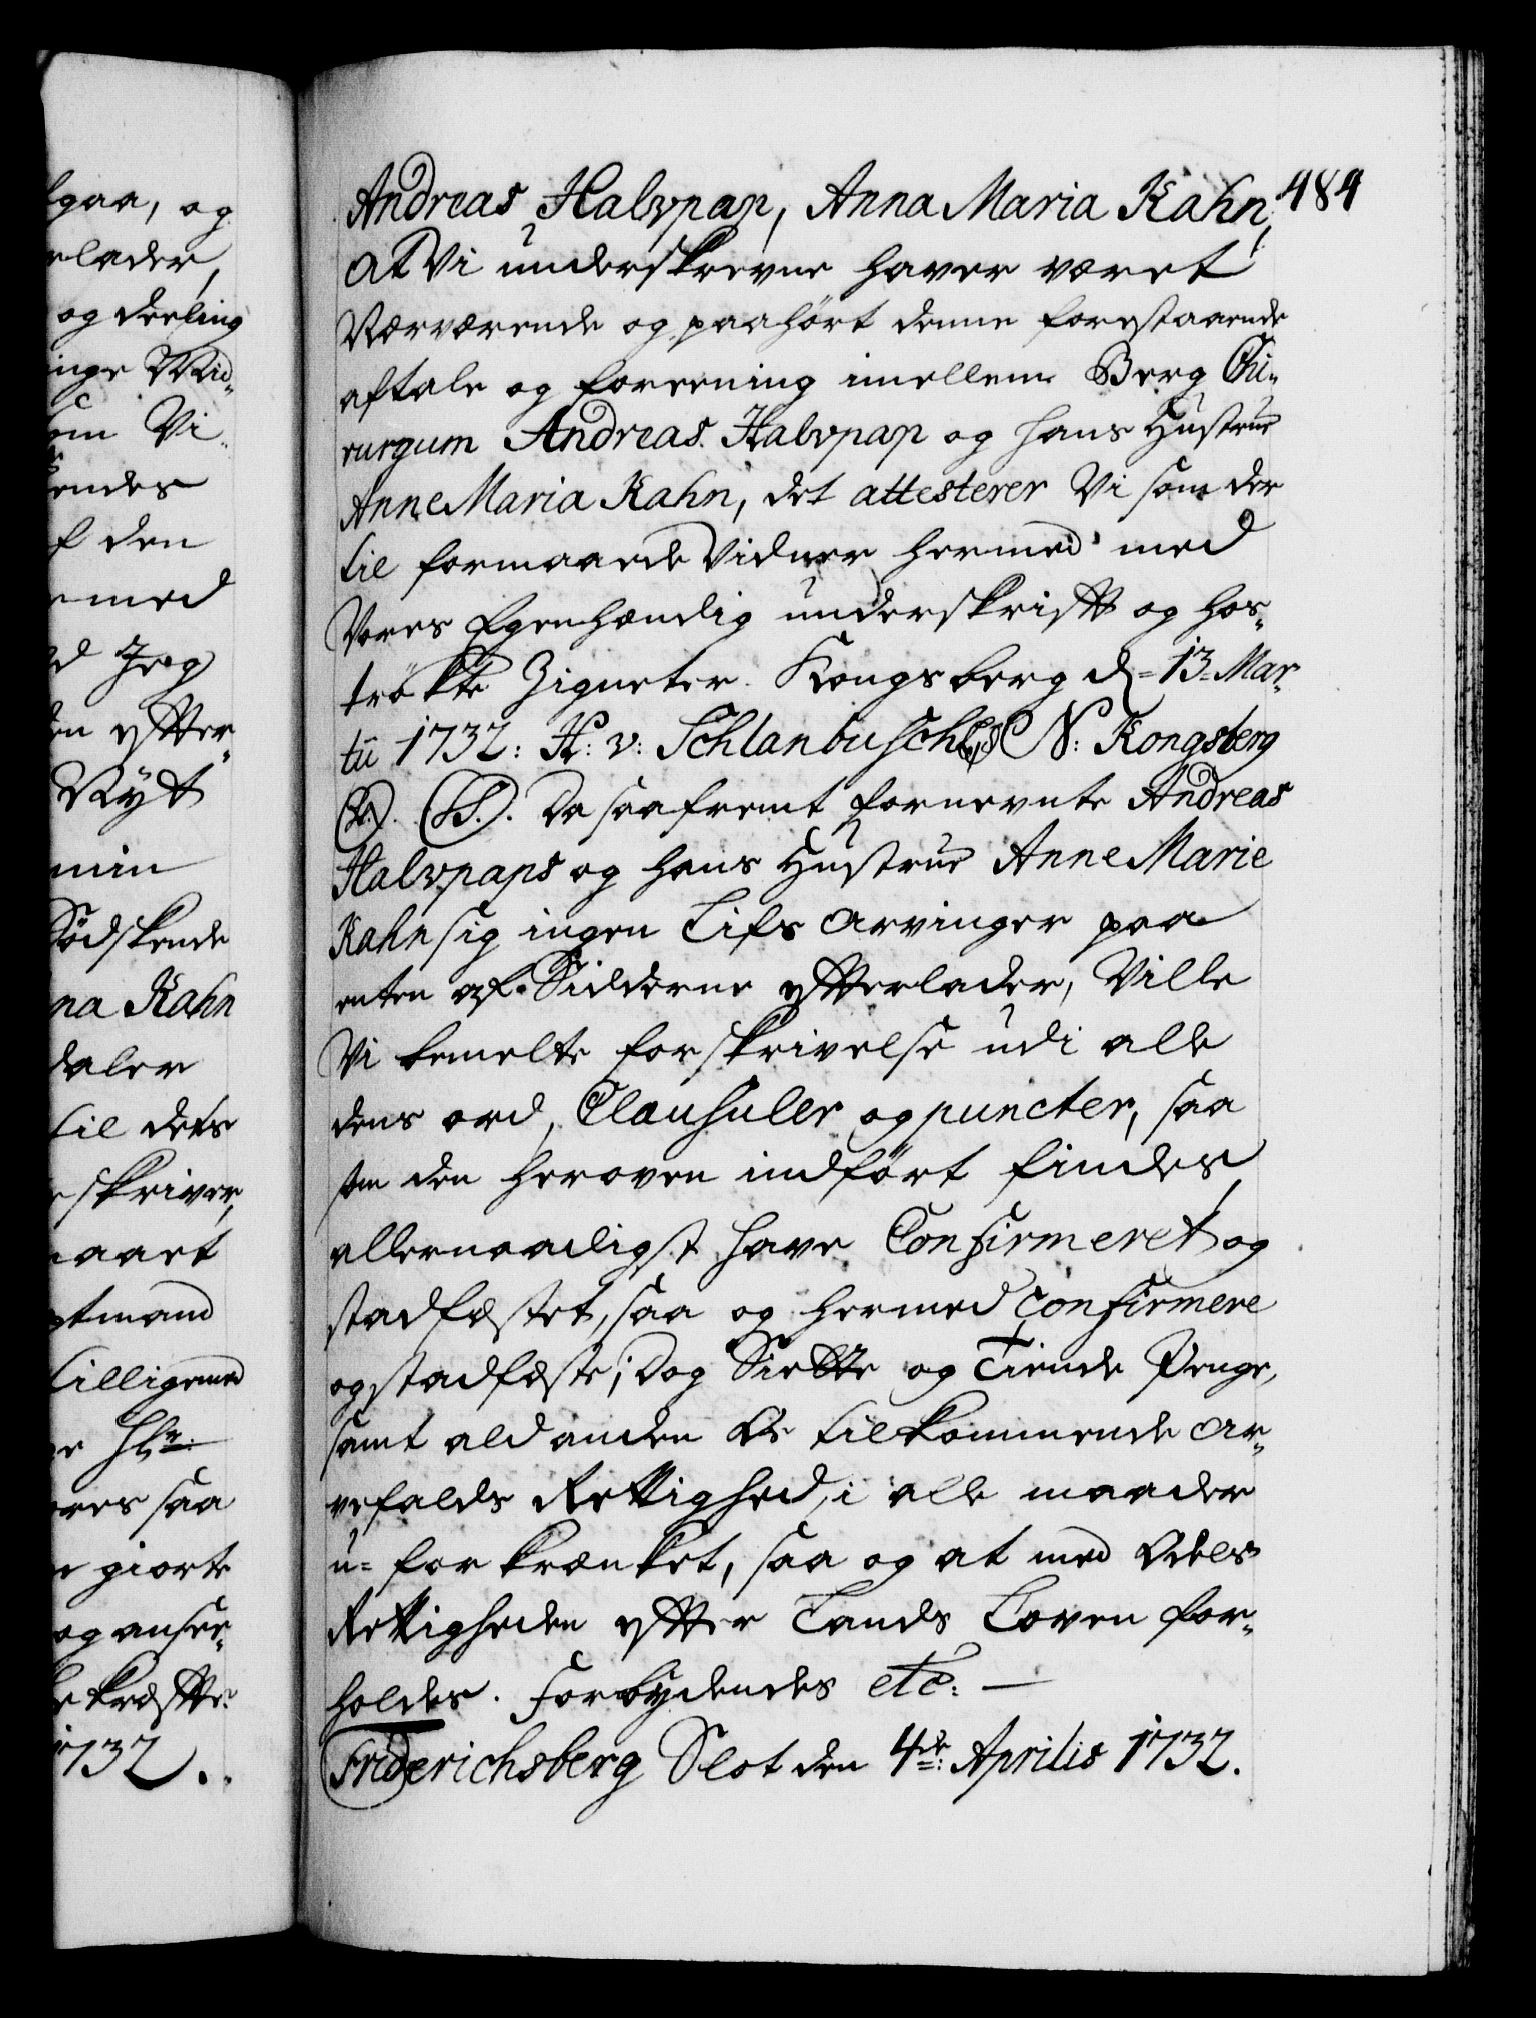 gaa, og
elader,
og deeling
inge Mid-
om Vi
endes
f den
med
d Jeg
en efter
Nyt
min
Sødskende
na Kahn
daler
til dets
skriver,
aaet
tmand
tilligemed
e Hr:
ores saa
e giorte
og ansee-
bekræffte
1732.
484
Andreas Halvpap, Anna Maria Kahn,
at Vi underskrevne haver været
Nærværende og paahört denne forestaaende
aftale og foreening imellem Berg Chi-
rurgum Andreas Halvpap og hans Hustrue
Anne Maria Kahn, det attesterer Vi som der
til formaaede Vidner hermed med
Vores Egenhændig underskrifft og hos-
trökte Zigneter. Kongsberg d. 13. Mar-
tii 1732: H: v: Schlanbusch N: Kongsberg
(LS.). (LS.). Da saafremt fornevnte Andreas
Halvpaps og hans Hustrue Anne Marie
Kahn sig ingen Lifs Arvinger paa
enten af Sidderne effterlader, Ville
Vi bemelte forskrivelse udi alle
dens ord, Clausuler og puncter, saa
som den heroven indfört findes,
allernaadigst have Confirmeret og
stadfæstet, saa og hermed Confirmere
og stadfæste; Dog Siette og Tiende Penge,
samt ald anden Os tilkommende Ar-
vefalds Rettighed, i alle maader
u-forkrænket, saa og at med Odels
Rettigheden effter Lands Loven for-
holdes. Forbydendes etc: —
Friderichsberg Slot den 4de: Aprilis 1732.